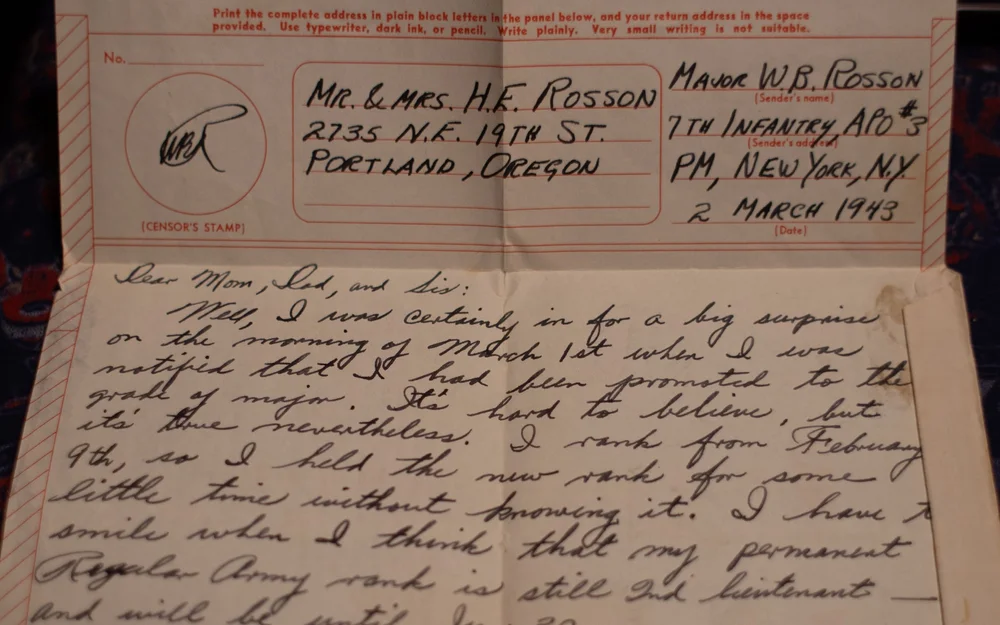 Print the complete address in plain block letters in the panel below, and your return address in the space
provided. Use typewriter, dark ink, or pencil. Write plainly. Very small writing is not suitable.
No.
WBR
(CENSOR'S STAMP)
MR. & MRS. H.E. ROSSON
2735 N.E. 19TH ST.
PORTLAND, OREGON
MAJOR W.B. ROSSON
(Sender's name)
7TH INFANTRY, APO #3
(Sender's address)
PM, NEW YORK, N.Y.
2 MARCH 1943
(Date)
Dear Mom, Dad, and Sis:
Well, I was certainly in for a big surprise
on the morning of March 1st when I was
notified that I had been promoted to the
grade of major. It's hard to believe, but
it's true nevertheless. I rank from February
9th, so I held the new rank for some
little time without knowing it. I have
smile when I think that my permanent
Regular Army rank is still 2nd lieutenant —
and will be until